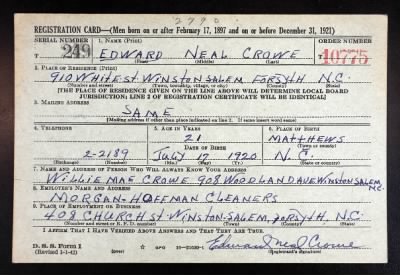 2770
REGISTRATION CARD—(Men born on or after February 17, 1897 and on or before December 31, 1921)
SERIAL NUMBER 1. NAME (Print) ORDER NUMBER
T 249 EDWARD NEAL CROWE T 10775
(First) (Middle) (Last)
2. PLACE OF RESIDENCE (Print)
910 WHITE ST WINSTON SALEM FORSYTH N.C.
(Number and street) (Town, township, village, or city) (County) (State)
[THE PLACE OF RESIDENCE GIVEN ON THE LINE ABOVE WILL DETERMINE LOCAL BOARD
JURISDICTION; LINE 2 OF REGISTRATION CERTIFICATE WILL BE IDENTICAL]
3. MAILING ADDRESS
SAME
[Mailing address if other than place indicated on line 2. If same insert word same]
4. TELEPHONE 5. AGE IN YEARS 6. PLACE OF BIRTH
21 MATTHEWS
DATE OF BIRTH (Town or county)
2-2189 JULY 17 1920 N.C.
(Exchange) (Number) (Mo.) (Day) (Yr.) (State or country)
7. NAME AND ADDRESS OF PERSON WHO WILL ALWAYS KNOW YOUR ADDRESS
WILLIE MAE CROWE 908 WOODLAND AVE WINSTON SALEM, N.C.
8. EMPLOYER'S NAME AND ADDRESS
MORGAN-HOFFMAN CLEANERS
9. PLACE OF EMPLOYMENT OR BUSINESS
408 CHURCH ST WINSTON-SALEM, FORSYTH, N.C.
(Number and street or R. F. D. number) (Town) (County) (State)
I AFFIRM THAT I HAVE VERIFIED ABOVE ANSWERS AND THAT THEY ARE TRUE.
D. S. S. Form 1 Edward Neal Crowe
(Revised 1-1-42) (Registrant's signature)